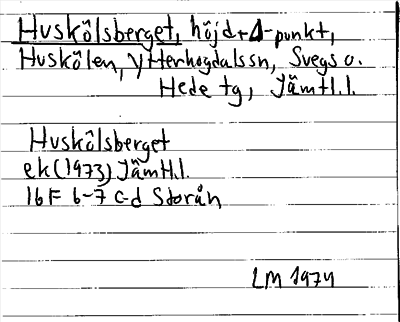 Huskölsberget, höjd+Δ-punkt,
Huskölen, Ytterhogdalssn, Svegs o.
Hede tg, Jämtl.l.
Huskölsberget
ek (1973) Jämtl.l.
16F 6-7 c-d Storån
LM 1974